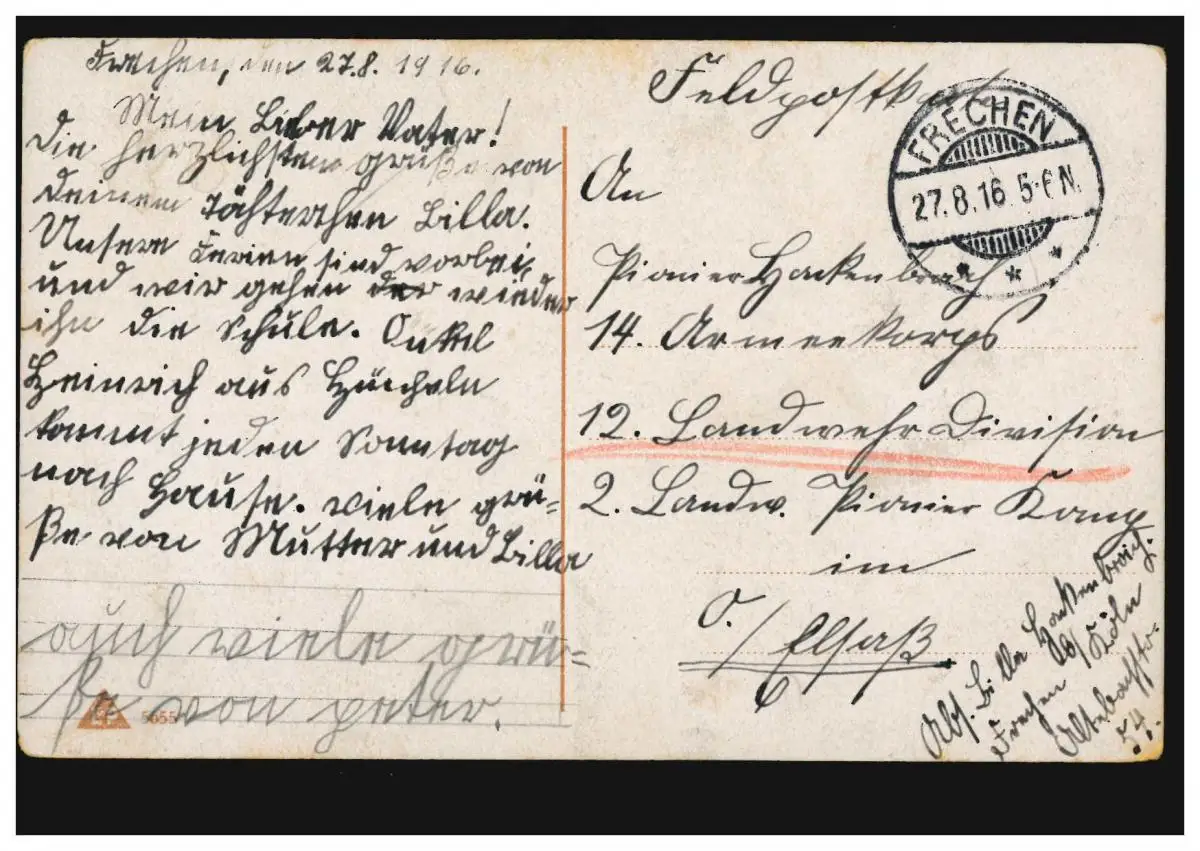 Frechen, den 27.8. 1916.
Mein Lieber Vater!
die herzlichsten grüße von
deinem Töchterchen Billa.
Unsere Ferien sind vorbei,
und wir gehen wieder
ihn die Schule. Onkel
Heinrich aus Hücheln
kommt jeden Sonntag
nach Hause. viele grü=
ße von Mutter und Billa
auch viele grü=
ße von peter.
5655
Feldpostkart
FRECHEN
27.8.16 5-6 N.
* * *
An
Pionier Hackenbroich
14. Armeekorps
12. Landwehr Division
2. Landw. Pionier Komp
im
O./Elsaß
Abs. Billa Hackenbroich.
Frechen Bz/Köln
54.